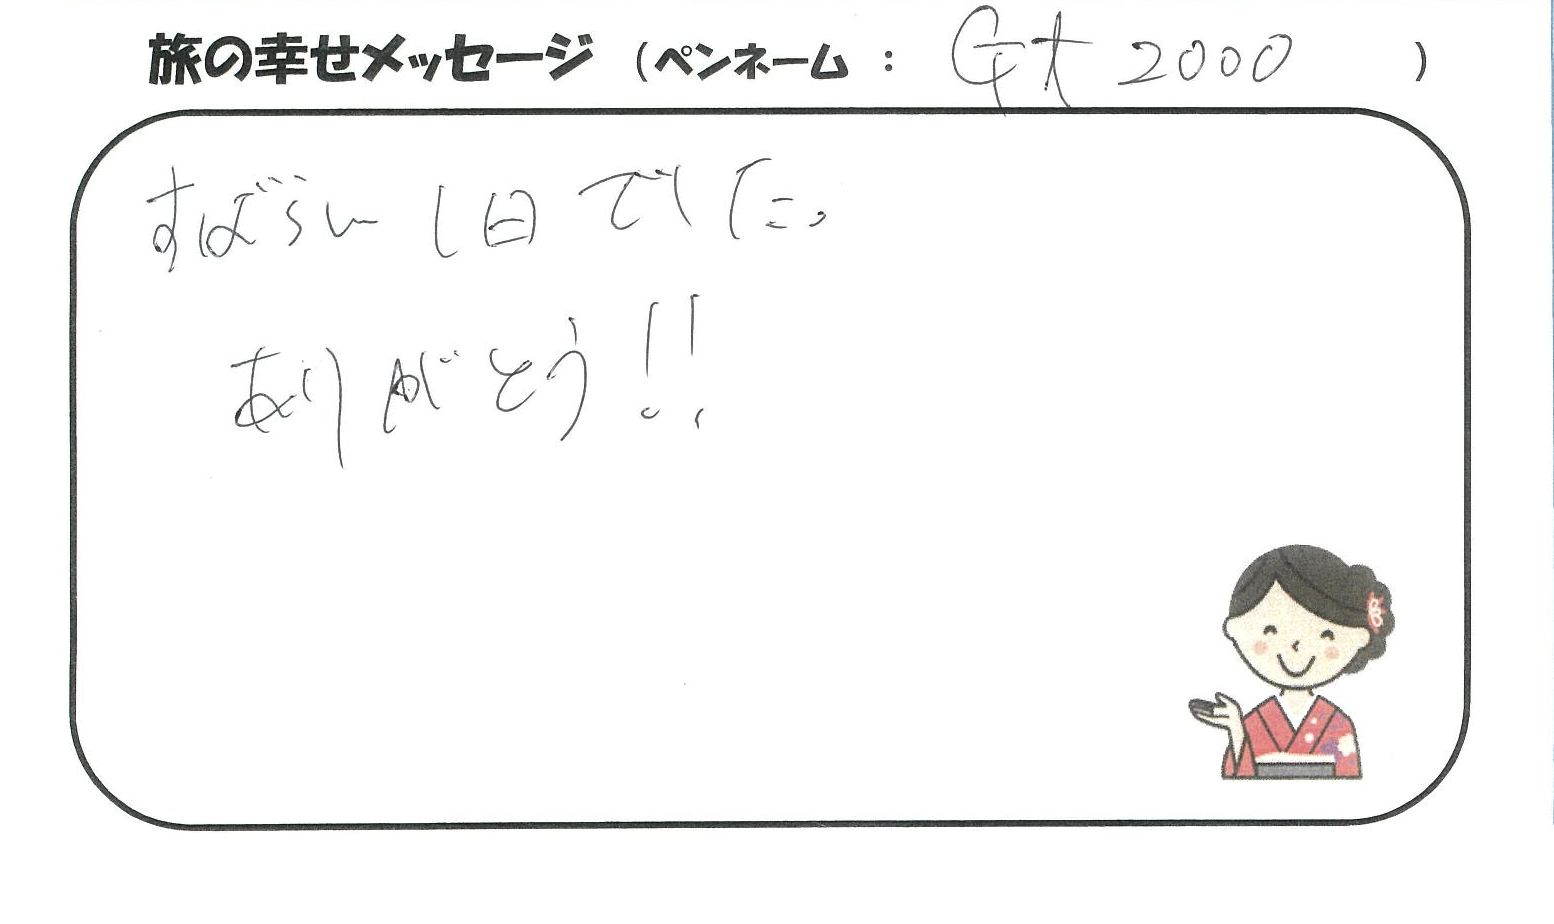 旅の幸せメッセージ (ペンネーム : Gt 2000 )
すばらしい1日でした。
ありがとう!!